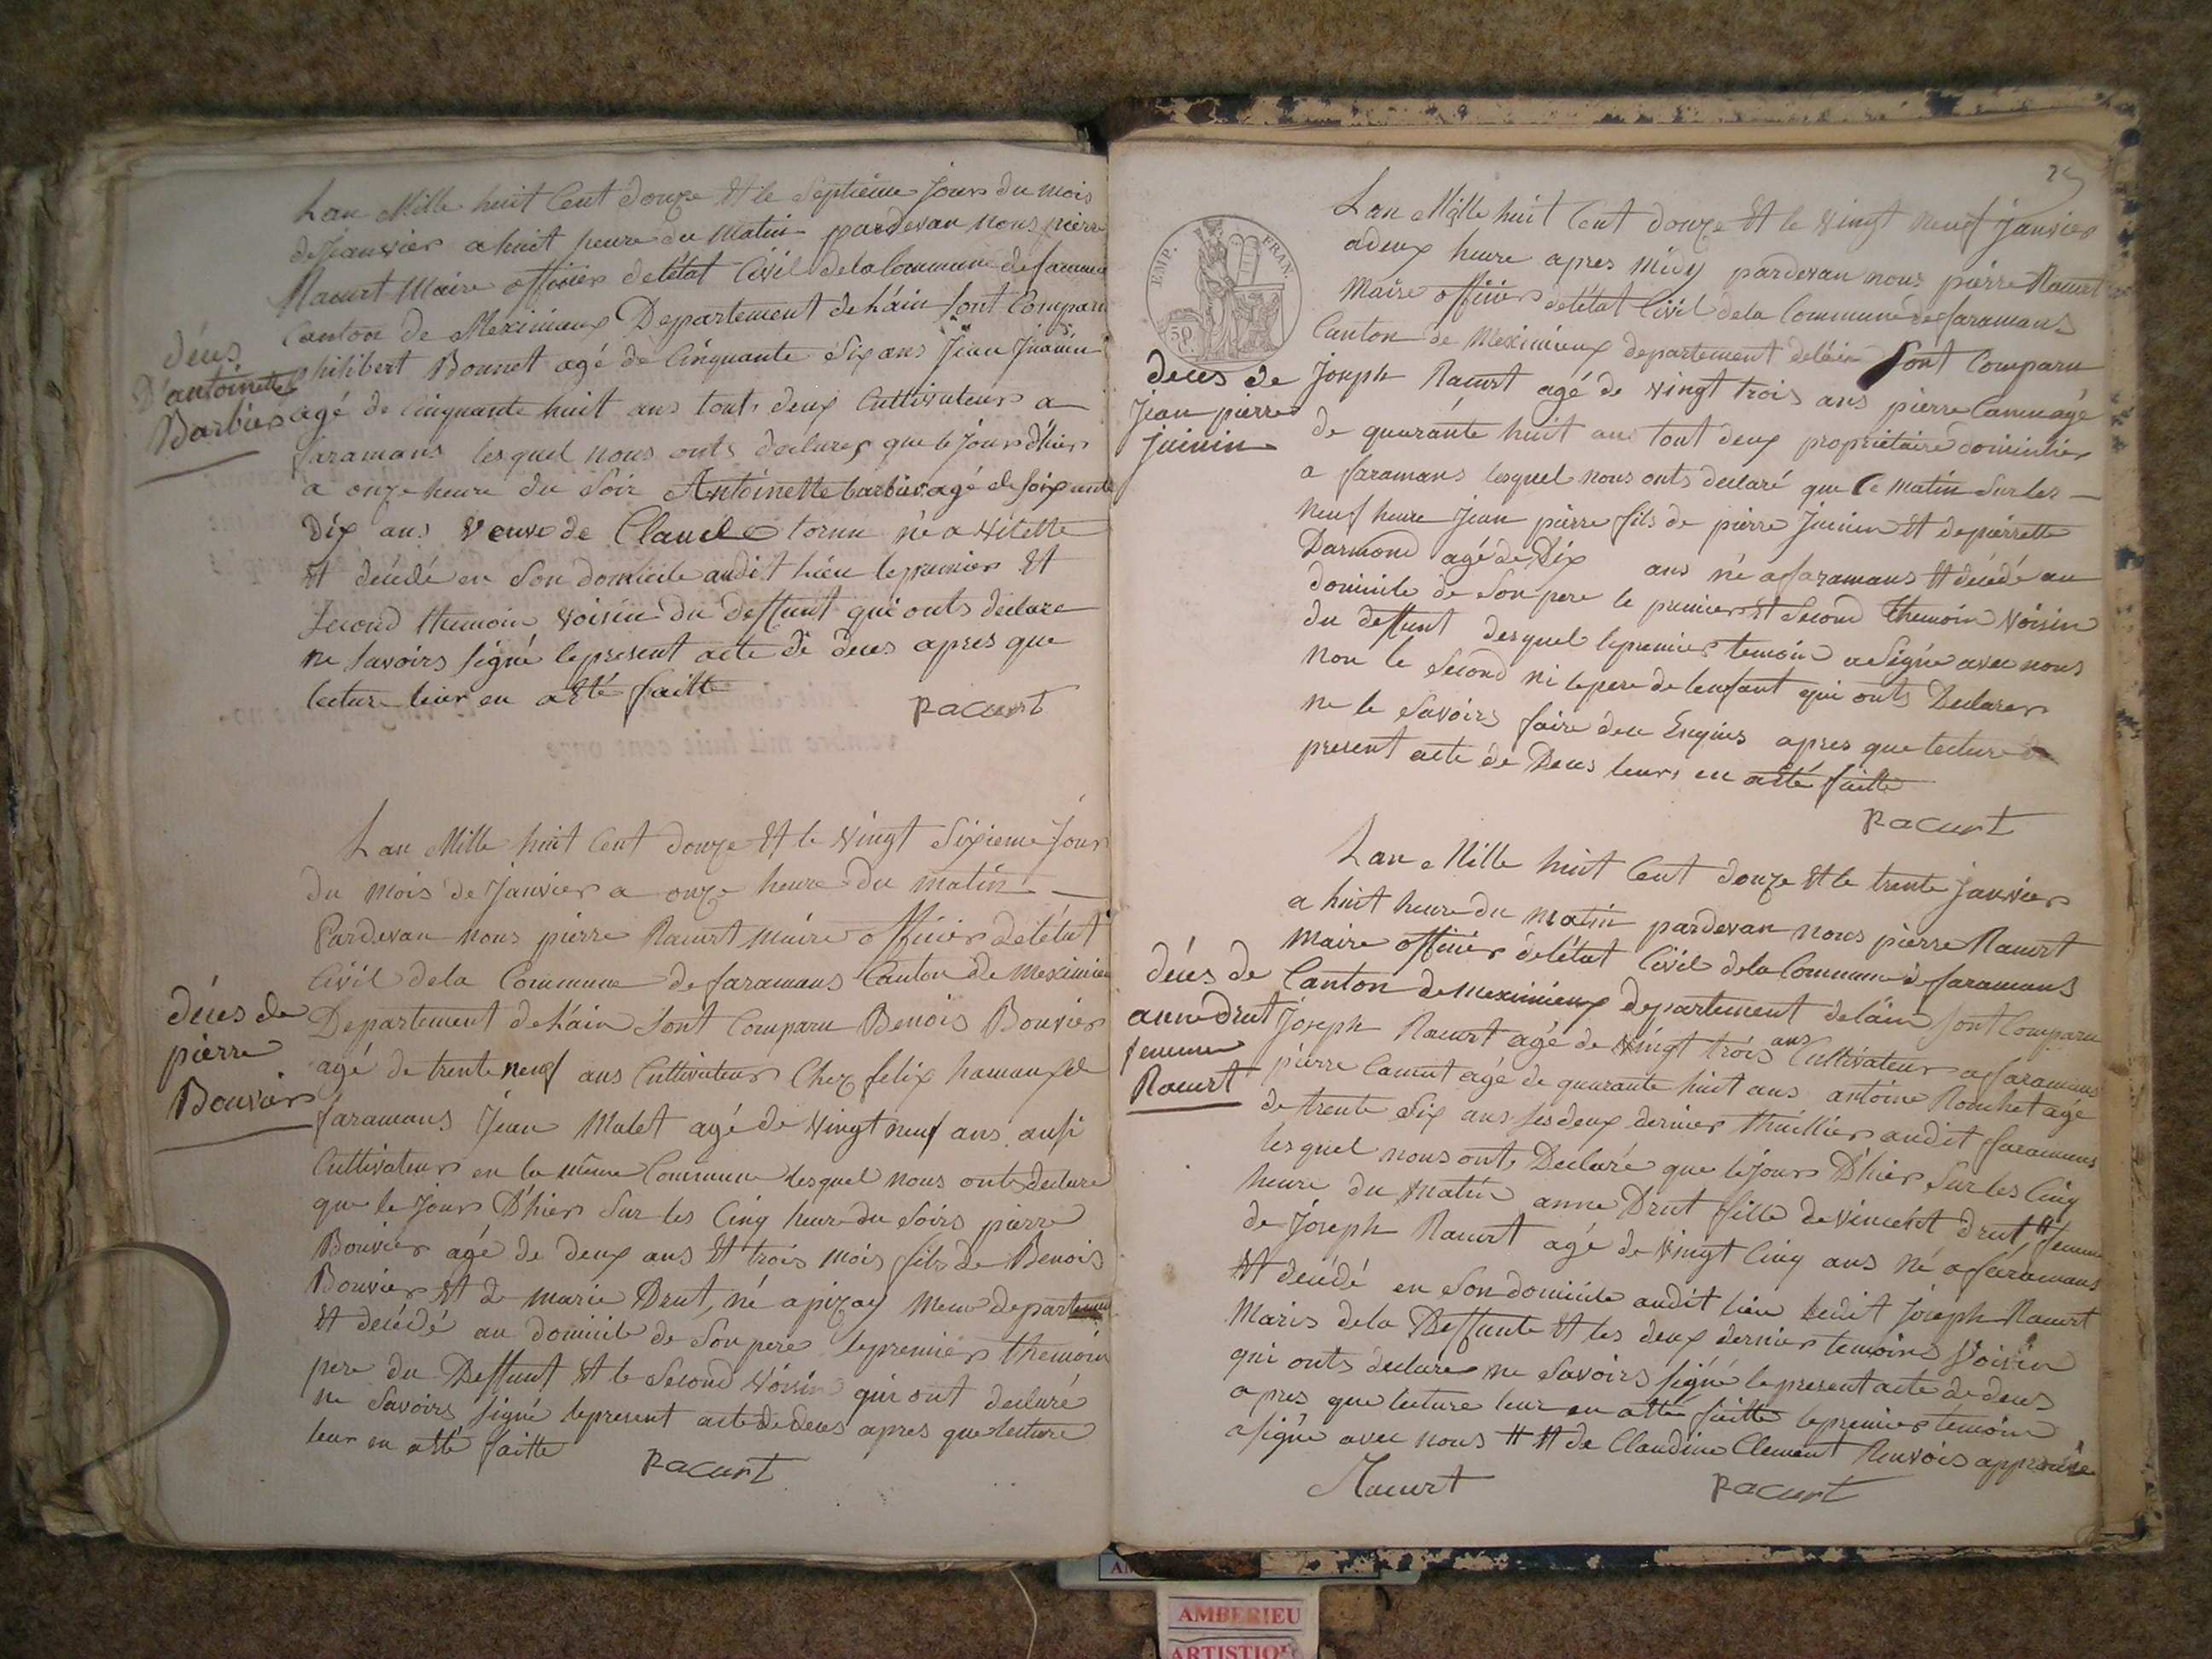 Lan Mille huit Cent douze Et le Septieme Jours du mois
de Janvier a huit heure du Matin pardevan nous pierre
Racurt Maire officier deletat Civil dela Commune de faramans
Canton de Meximieux Departement de Láin Sont Comparu
déces
D'antoinette
Barbier
philibert Bonnet agé de Cinquante Six ans Jean Juenin
agé de Cinquante huit ans touts deux Cultivateurs a
faramans lesquel nous onts declarer que le Jours d'hier
a onze heure du Soir Antoinette barbier agé de Soixante
Dix ans veuve de Claude tornu né a vilette
Et décédé en Son domicile audit Lieu le premier Et
Second themoin voisin du deffunt qui onts declare
ne Savoirs Signé le present acte de deces apres que
lecture leur en a Eté faitte
Racurt
Lan Mille huit Cent douze Et le vingt Sixieme Jour
du mois de Janvier a onze heure du matin
Pardevan nous pierre Racurt maire officier deletat
Civil dela Commune de faramans Canton de Meximieu
décés de
pierre
Bouvier
Departement de Láin Sont Comparu Benois Bouvier
agé de trente neuf ans Cultivateur Chez felix
faramans Jean Malet agé de vingt neuf ans ausi
Cultivateur en la même Commune lesquel nous onts declare
que le Jours D'hier Sur les Cinq heure du Soirs pierre
Bouvier agé de deux ans Et trois mois fils de Benois
Bouvier Et de marie Drut, né a pizay meme departement
Et décédé au domicile de Son pere le premier themoin
pere du Deffunt Et le Second voisin qui ont declaré
ne Savoirs Signé le present acte de deces apres que lecture
leur en a Eté faitte
Racurt
EMP. FRAN.
50
Lan Mille huit Cent douze Et le vingt neuf Janvier
a deux heure apres Midy pardevan nous pierre Racurt
Maire officier deletat Civil dela Commune de faramans
Canton de Meximieux departement deláin Sont Comparu
deces de
Jean pierre
Juinin
Joseph Racurt agé de vingt trois ans pierre agé
de quarante huit ans tout deux proprietaire domicilier
a faramans lesquel nous onts declaré que Ce matin Sur les
Neuf heure Jean pierre fils de pierre Juenin Et de pierrette
Darmond agé de Dix ans né a faramans Et décédé au
domicile de Son pere le premier Et Second themoin voisin
du deffunt desquel le premier temoin a Signé avec nous
non le Second ni le pere de lenfant qui onts Declarer
ne le Savoirs faire deu Enquis apres que lecture
present acte de Deces leurs en a Eté faitte
Racurt
Lan Mille huit Cent douze Et le trente Janvier
a huit heure du matin pardevan nous pierre Racurt
Maire officier deletat Civil dela Commune de faramans
décés de
anne drut
femme
Racurt
Canton de meximieux departement deláin Sont Comparu
Joseph Racurt agé de vingt trois ans Cultivateur a faramans
pierre agé de quarante huit ans antoine Rouchet agé
de trente Six ans les deux dernier audit faramans
lesquel nous onts Declaré que le jours D'hier Sur les Cinq
heure du matin anne Drut fille de vincent drut # femme
de Joseph Racurt agé de vingt Cinq ans né a faramans
Et décédé en Son domicile audit lieu ledit Joseph Racurt
Maris dela Deffunte Et les deux dernier temoins voisin
qui onts declarer ne Savoirs Signé le present acte de deces
apres que lecture leur en a Eté faitte le premier temoin
a Signé avec nous # Et de Claudine Clement Renvois approuvé
Racurt Racurt
AMBERIEU
ARTISTIQU